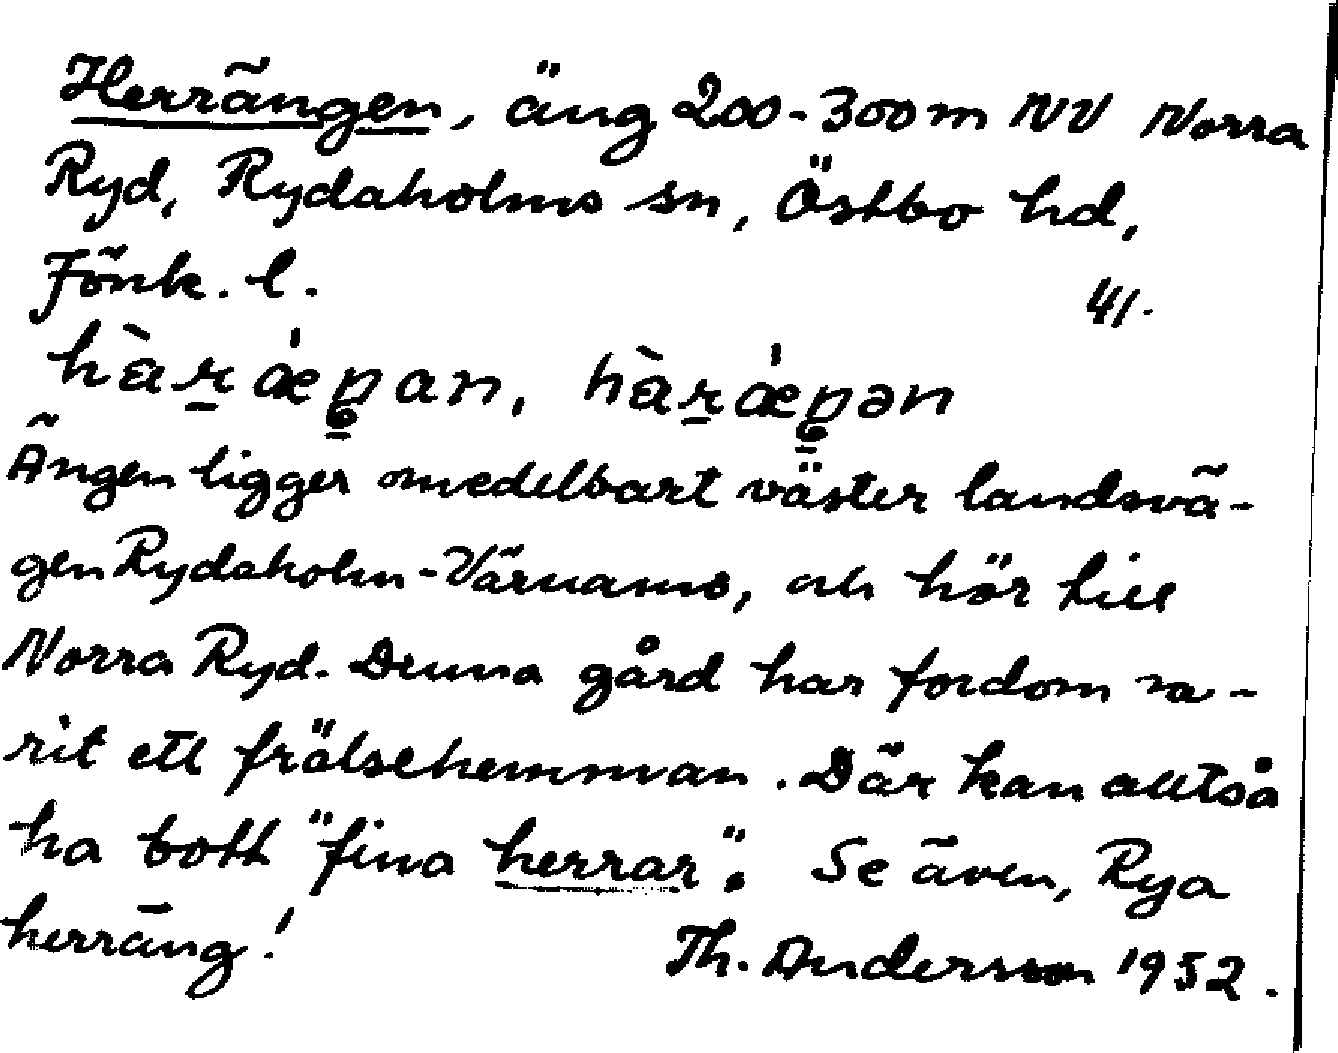 Herrängen, äng 200-300 m NV Norra
Ryd, Rydaholms sn, Östbo hd,
Jönk. l.
41.
Ängen ligger omedelbart väster landsvä-
gen Rydaholm-Värnamo, och hör till
Norra Ryd. Denna gård har fordom va-
rit ett frälsehemman. Där kan alltså
ha bott "fina herrar". Se även, Rya
herräng!
Th. Andersson 1952.